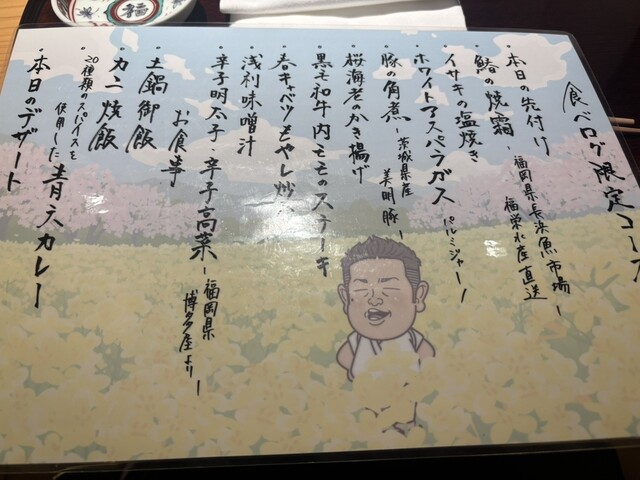 食べログ限定コース
・本日の先付け
・鰆の焼霜 -福岡県長浜魚市場-
福栄水産直送
・イサキの塩焼き
・ホワイトアスパラガス パルミジャーノ
・豚の角煮 -茨城県産
美明豚-
・桜海老のかき揚げ
・黒毛和牛内モモのステーキ
・春キャベツともやし炒め
・浅利味噌汁
・辛子明太子・辛子高菜 -福岡県
博多屋より-
お食事
・土鍋御飯
・カニ焼飯
・20種類のスパイスを
使用した青天カレー
・本日のデザート
福